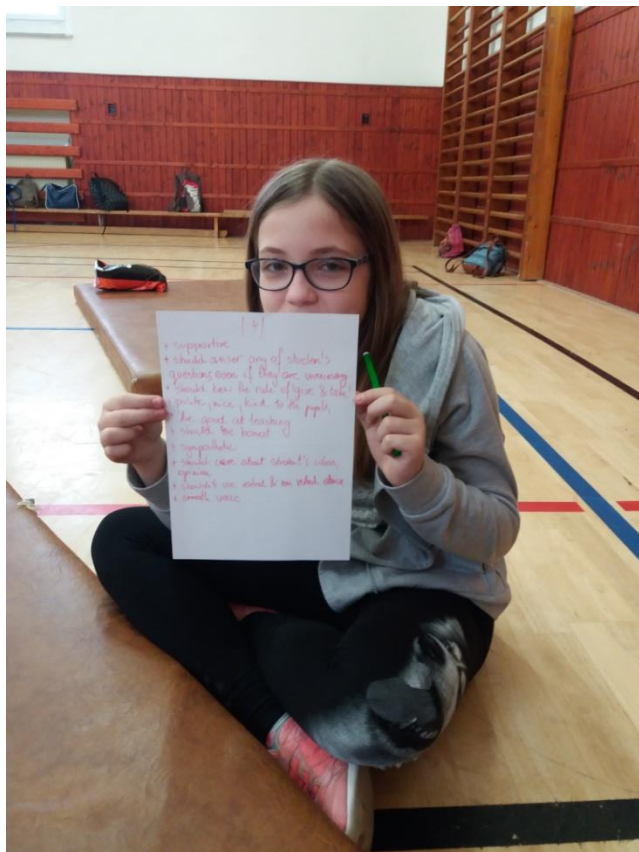 (+)
+ supportive
+ should answer any of student's
questions even if they are
+ should know the rule of give & take
+ polite, nice, kind to the pupils,
be good at teaching
+ should be honest
+ sympathetic
+ should care about student's ideas,
opinion
+ shouldn't use verbal & non verbal
+ smooth voice